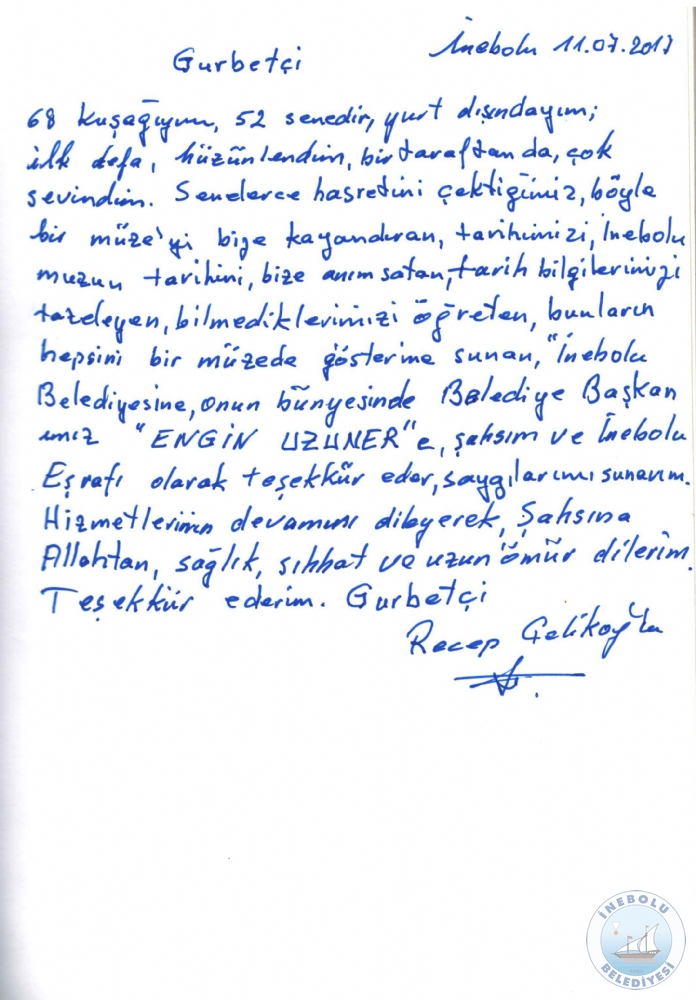 İnebolu 11.07.2017
Gurbetçi
68 kuşağıyım, 52 senedir, yurt dışındayım;
ilk defa, hüzünlendim, bir taraftan da, çok
sevindim. Senelerce hasretini çektiğimiz, böyle
bir müze'yi bize kazandıran, tarihimizi, İnebolu
muzun tarihini, bize anımsatan, tarih bilgilerimizi
tazeleyen, bilmediklerimizi öğreten, bunların
hepsini bir müzede gösterime sunan, "İnebolu
Belediyesine, onun bünyesinde Belediye Başkan
ımız "ENGİN UZUNER"e, şahsım ve İnebolu
Eşrafı olarak teşekkür eder, saygılarımı sunarım.
Hizmetlerinin devamını dileyerek, Şahsına
Allahtan, sağlık, sıhhat ve uzun ömür dilerim.
Teşekkür ederim. Gurbetçi
Recep Çelikoğlu
İNEBOLU
BELEDİYESİ